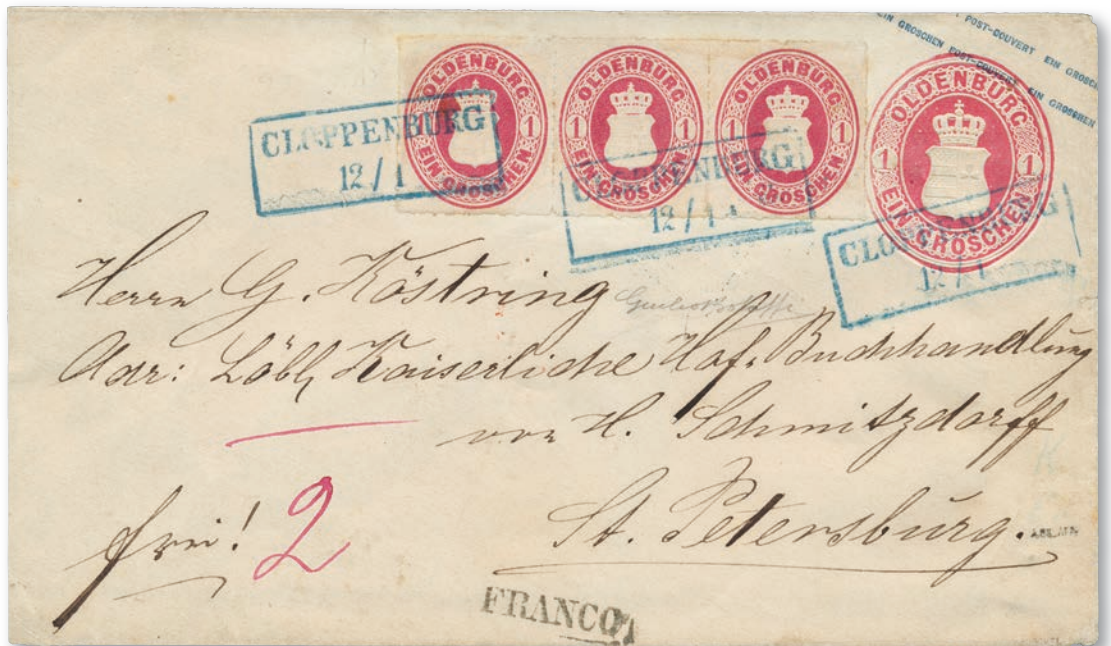 POST-COUVERT EIN GROSCHEN
EIN GROSCHEN POST-COUVERT EIN GROSCHEN
OLDENBURG
1 1
EIN GROSCHEN
OLDENBURG
1 1
EIN GROSCHEN
OLDENBURG
1 1
EIN GROSCHEN
OLDENBURG
1 1
EIN GROSCHEN
CLOPPENBURG
12/1
CLOPPENBURG
12/1
CLOPPENBURG
12/1
Herrn G. Köstring
Adr: Löbl, Kaiserliche Hof-Buchhandlung
von H. Schmitzdorff
St. Petersburg.
frei! 2
FRANCO